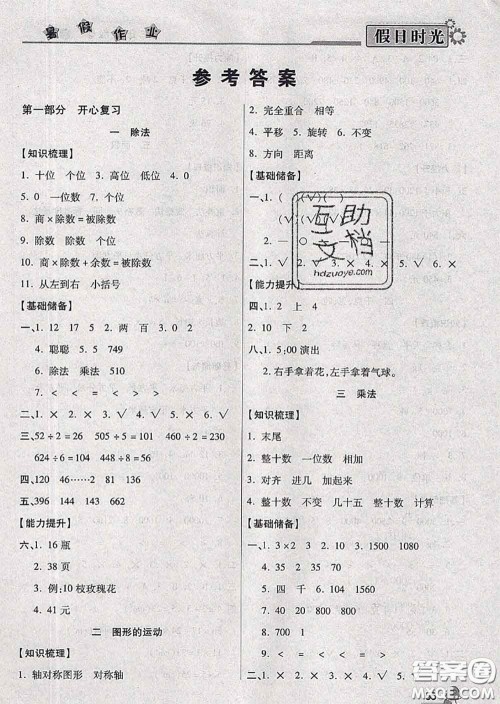 暑假作业
假日时光
参考答案
第一部分 开心复习
一 除法
【知识梳理】
1. 十位 个位 3. 高位 低位 4. 0
5. 0 一位数 7. 个位
8. 商×除数=被除数
9. 除数 除数 个位
10. 商×除数+余数=被除数
11. 从左到右 小括号
【基础储备】
一、1. 12 17 5 2. 两 百 3. 0 2
4. 聪聪 5. 5 749
6. 除法 乘法 510
7. < < = < > >
二、1. × 2. × 3. √ 4. √ 5. × 6. √
三、52÷2=26 104÷2=52 208÷2=104
624÷6=104 918÷9=102 460÷2=230
624÷6=104 918÷9=102 460÷2=230
四、120 46……2 81 136
五、396 144 143 662
【能力提升】
六、1. 16 瓶
2. 38 页
3. 例:10 枝玫瑰花
4. 41 元
二 图形的运动
【知识梳理】
1. 轴对称图形 对称轴
2. 完全重合 相等
4. 平移 5. 旋转 6. 不变
8. 方向 距离
【基础储备】
一、1.
二、
互助文档
hdzuoye.com
2. √ 3. × 4. × 5. ×
【能力提升】
四、2. 上 4
2. 10 下 2
一、1. 5:00 演出
2. 右手拿着花,左手拿着气球。
三 乘法
【知识梳理】
1. 末尾
2. 整十数 一位数 相加
3. 对齐 进几 加起来
4. 整十数 不变 几十五 整十数 计算
【基础储备】
一、1. 3×2 3 2. 10 3. 1500 1080
5. 四 千 6. 50 7. 350
8. 700 1
9. > < = >
二、1. √ 2. × 3. × 4. × 5.
答案圈
MXQE.COM